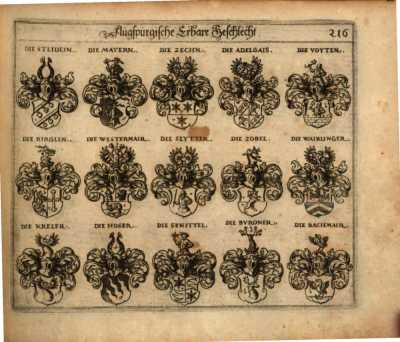 Augspurgische Erbare Geschlecht 216
DIE STLIDEIN. DIE MAYERN. DIE ZECHN. DIE ADELGAIS. DIE VOYTEN.
DIE RINGLEN. DIE WESTERMAIR. DIE ZOBEL.
DIE KRELER. DIE HOSER. DIE SENFTTEL. DIE BURDNER. DIE BACHMAIR.